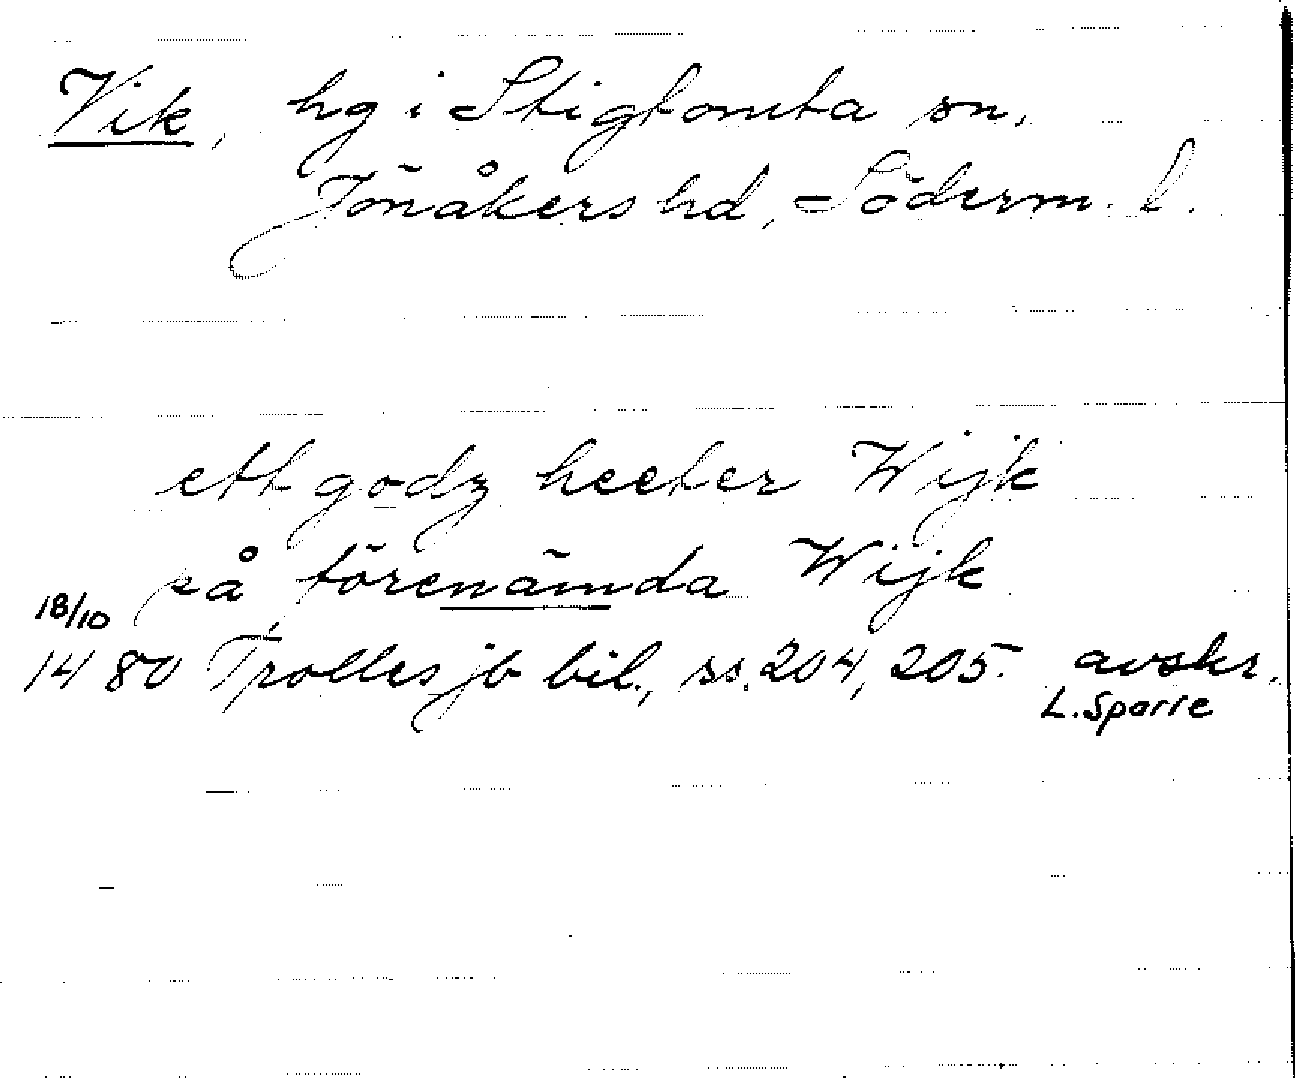 Vik, hg i Stigtomta sn,
Jönåkers hd, Söderm. l.
ett godz heeter Wijk
på förenämda Wijk
18/10
1480 Trolles jb bil., ss. 204, 205. avskr.
L. Sparre